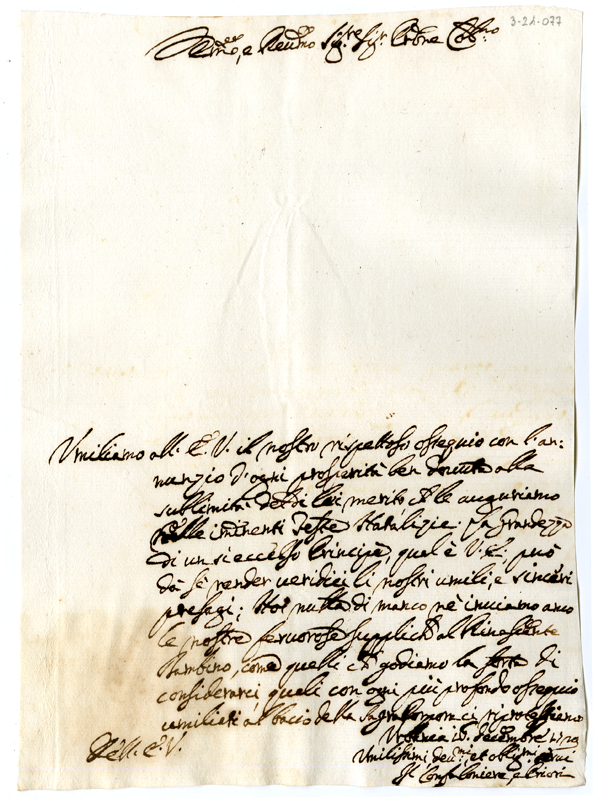 3-21-077
Em.mo, e Reu.mo Sig.re Sig.r P.rone Col.mo
Vmiliamo all' E. V. il nostro rispettoso ossequio con l'an:
nunzio d'ogni prosperità ben douuta alla
sublimità del di lei merito le auguriamo
nelle iminenti feste Natalizie. La Grandezza
di un sì eccelso Principe, qual'è V. E. può
da sè render ueridici li nostri umili, e sinceri
presagi; Noi nulla di manco nè inuiamo anco
le nostre feruorose suppliche al Rinascente
Bambino, come quelli che godiamo la sorte di
considerarci quali con ogni più profondo ossequio
umiliati al bacio della Sagra Porpora ci riprotestiamo
Dell' E. V.
decembre
Vmilissimi deu.mi et oblig.mi serui
Il Confaloniere, e Priori